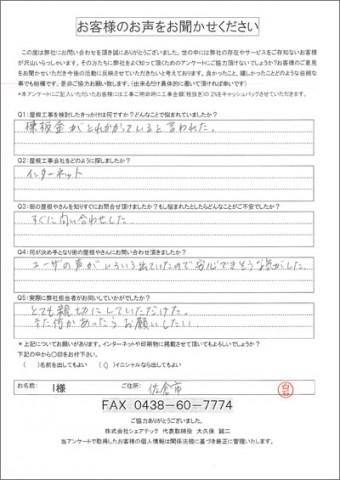 お客様のお声をお聞かせください
この度は弊社にお問い合わせを頂き誠にありがとうございました。世の中には弊社の存在やサービスをご存知ないお客様
が沢山いらっしゃいます。その方たちに弊社をよく知って頂くためのアンケートにご協力頂けないでしょうか?お客様のご意見
をお聞かせいただき今後の活動に反映させていただきたいと考えております。良かったこと、嬉しかったことどのような些細な
事でも結構です。是非ご協力お願い致します。(出来るだけ具体的に書いて頂ければ幸いです)
*本アンケートにご記入いただいたお客様には工事ご依頼時に工事金額(税抜き)の2%をキャッシュバックさせていただきます。
Q1:屋根工事を検討したきっかけは何ですか?どんなことで悩まれていましたか?
棟板金がとれかかっていると言われた。
Q2:屋根工事会社をどのように探しましたか?
インターネット
Q3:街の屋根やさんを知りすぐにお問合せ頂けましたか?もし悩まれたとしたらどんなことがご不安でしたか?
すぐに問い合わせした
Q4:何が決め手となり街の屋根やさんにお問い合わせ頂きましたか?
ユーザの声がいろいろ出ていたので安心できそうな気がした。
Q5:実際に弊社担当者がお伺いしていかがでしたか?
とても親切にしていただけた。
また何かあったらお願いしたい
*上記についてお願いがあります。インターネットや印刷物に掲載させて頂いてもよろしいでしょうか?
下記の中から〇印をお付け下さい。
( )名前を出してもよい (〇)イニシャルなら出してもよい
お名前: I様 ご住所: 佐倉市
FAX 0438-60-7774
ご協力ありがとうございました。
株式会社シェアテック 代表取締役 大久保 誠二
当アンケートで取得したお客様の個人情報は関係法規に基づき厳正に管理いたします。